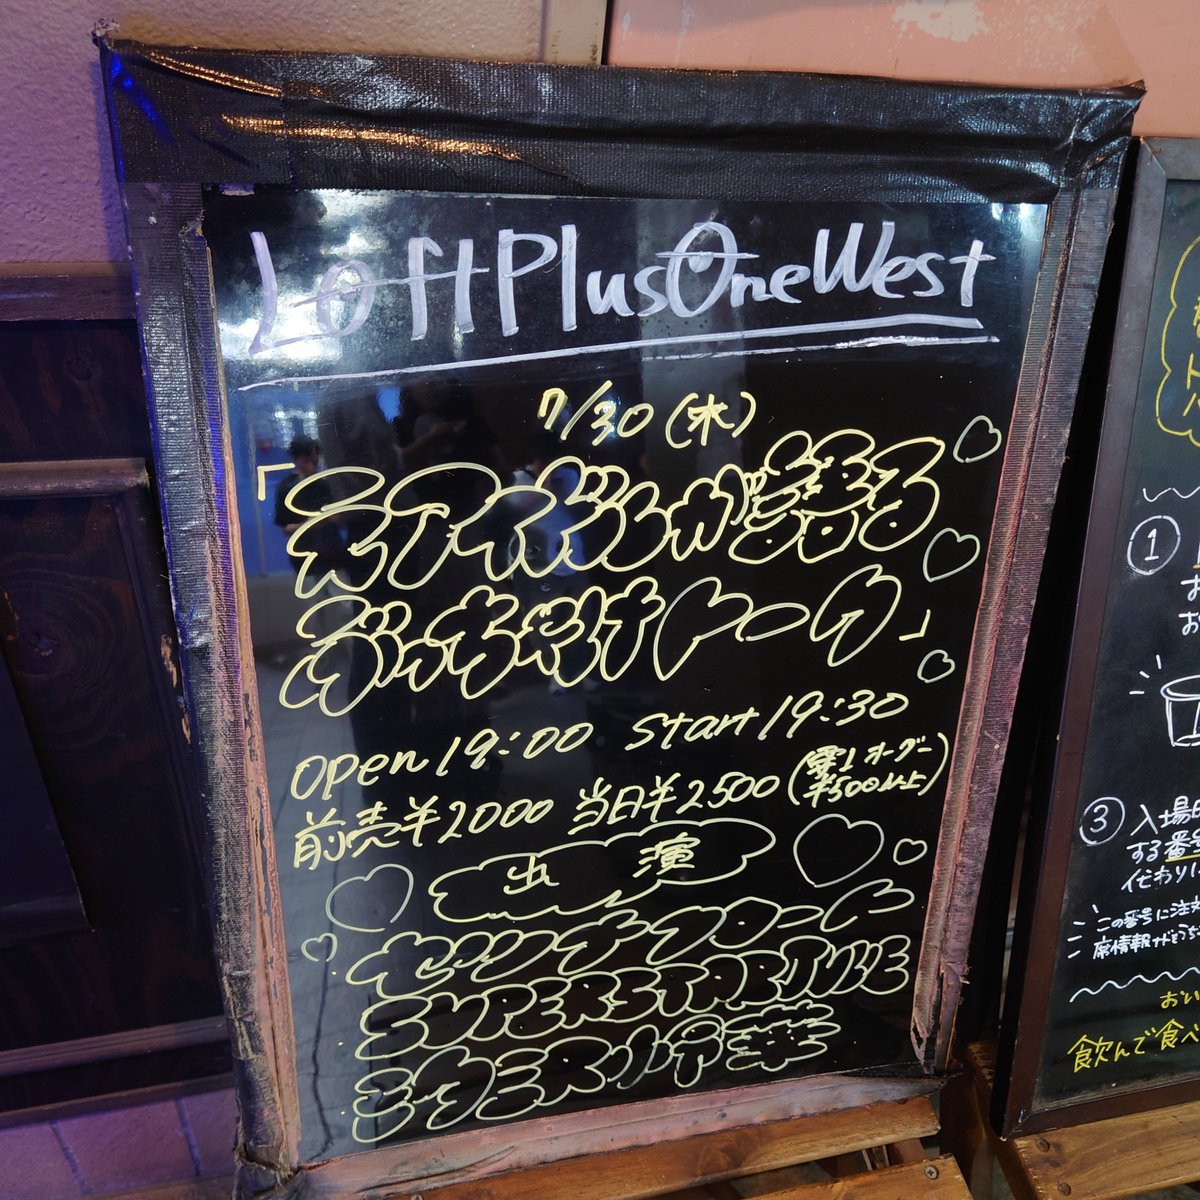 Loft PlusOneWest
7/30(木)
「元アイドルが語る
ぶっちゃけトーク」
open 19:00 start 19:30
前売¥2000 当日¥2500(要1オーダー
¥500以上)
出演
セツナフロート
SUPERSTAR JULIE
シウミズ小
華
①
お
お
③ 入場
する番号
代わりに
この番号に注文
席情報がどうち
おい
飲んで食べ